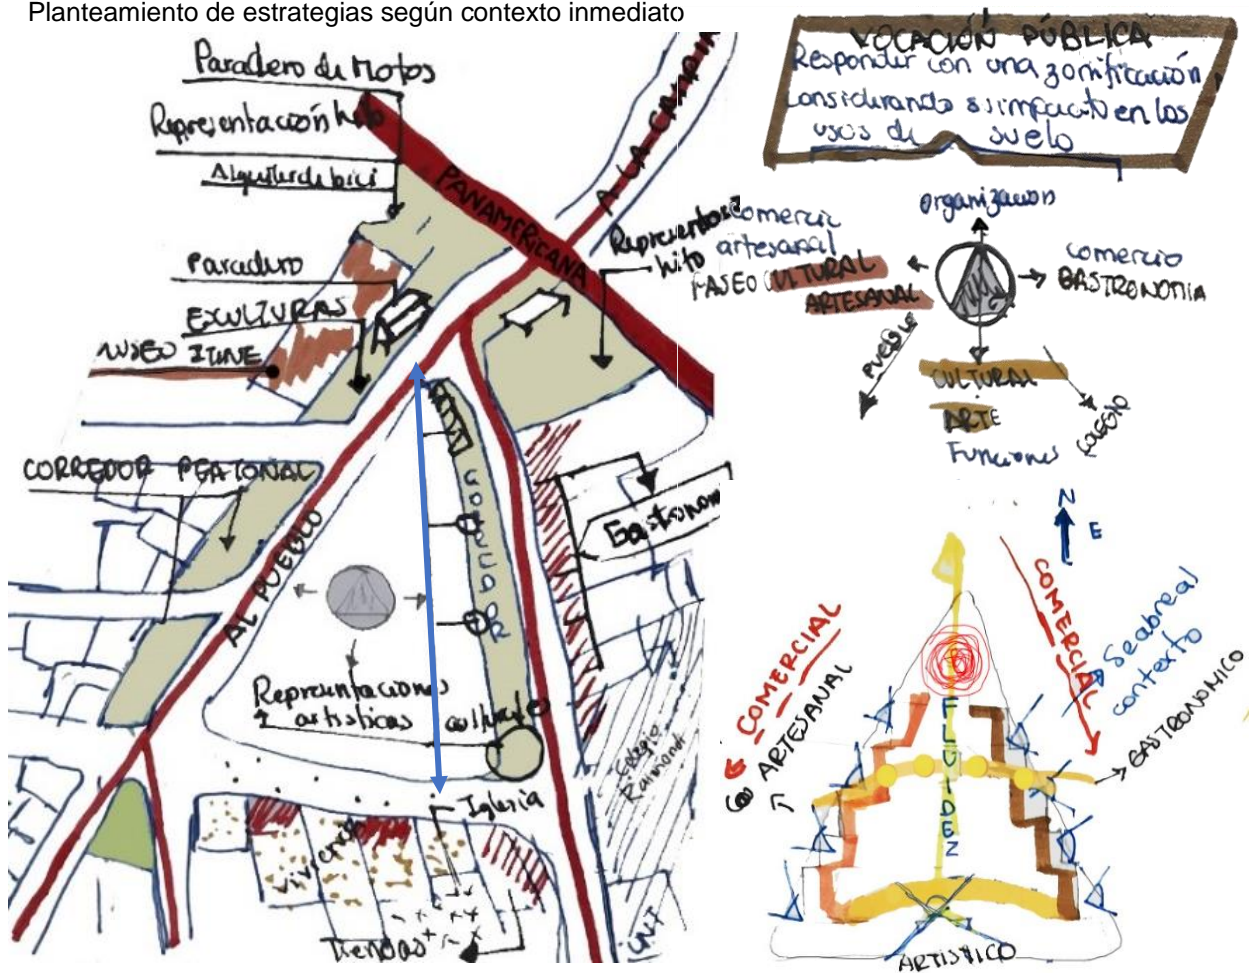 Planteamiento de estrategias según contexto inmediato
Paradero de Motos
Representación hito
Alquiler de bici
Paradero
EXCULTURAS
MUSEO ITINE
CORREDOR PEATONAL
PANAMERICANA
A LA CAMPIÑ
Representac
hito
AL PUEBLO
CORREDOR
Gastronom
Representaciones
artisticas culturales
Colegio
Raimondi
Iglesia
Viviendas
Tiendas
UNT
VOCACIÓN PÚBLICA
Responder con una zonificación
considerando su impacto en los
usos de suelo
organizacion
comercio
artesanal
PASEO CULTURAL
ARTESANAL
comercio
GASTRONOMIA
PUEBLO
CULTURAL
ARTE
Funciones
COLEGIO
N
E
COMERCIAL
Se abre al
contexto
GASTRONOMICO
COMERCIAL
ARTESANAL
FLUIDEZ
ARTISTICO